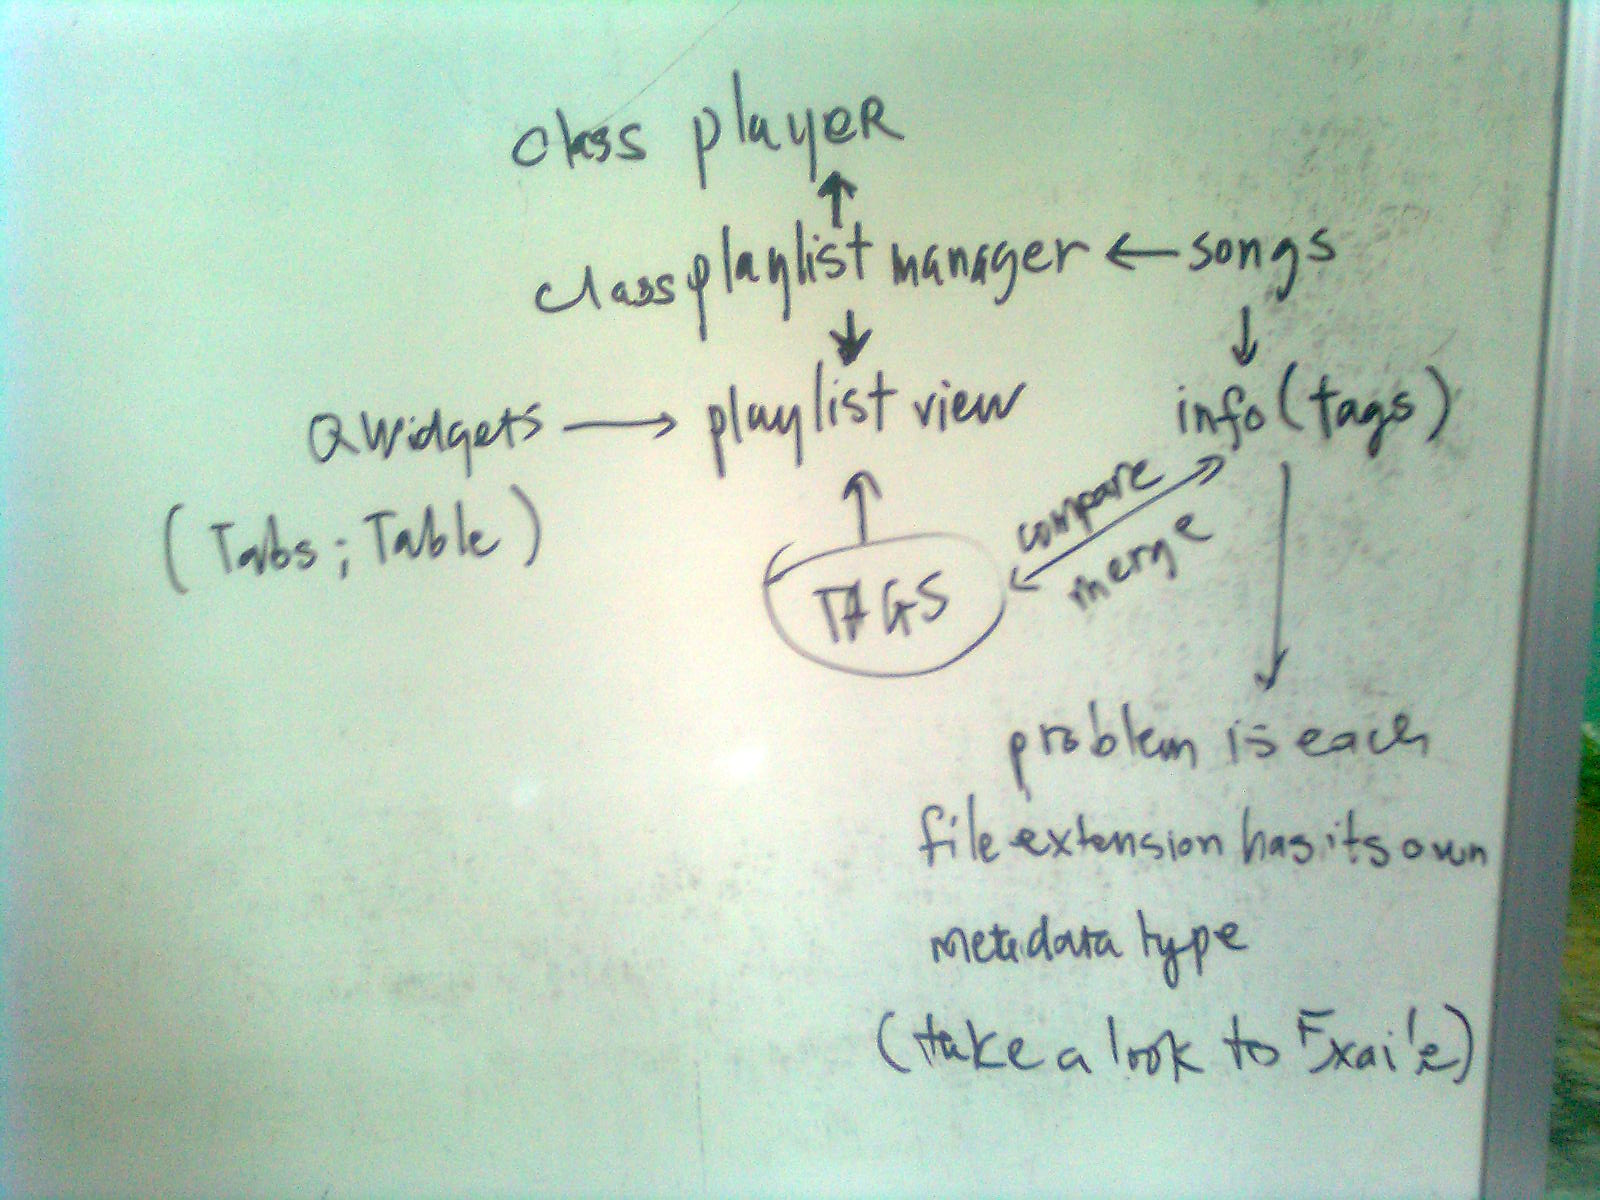 class player
class playlist manager ← songs
QWidgets → playlist view
info (tags)
(Tabs ; Table)
compare
merge
TAGS
problem is each
file extension has its own
metadata type
(take a look to Exaile)